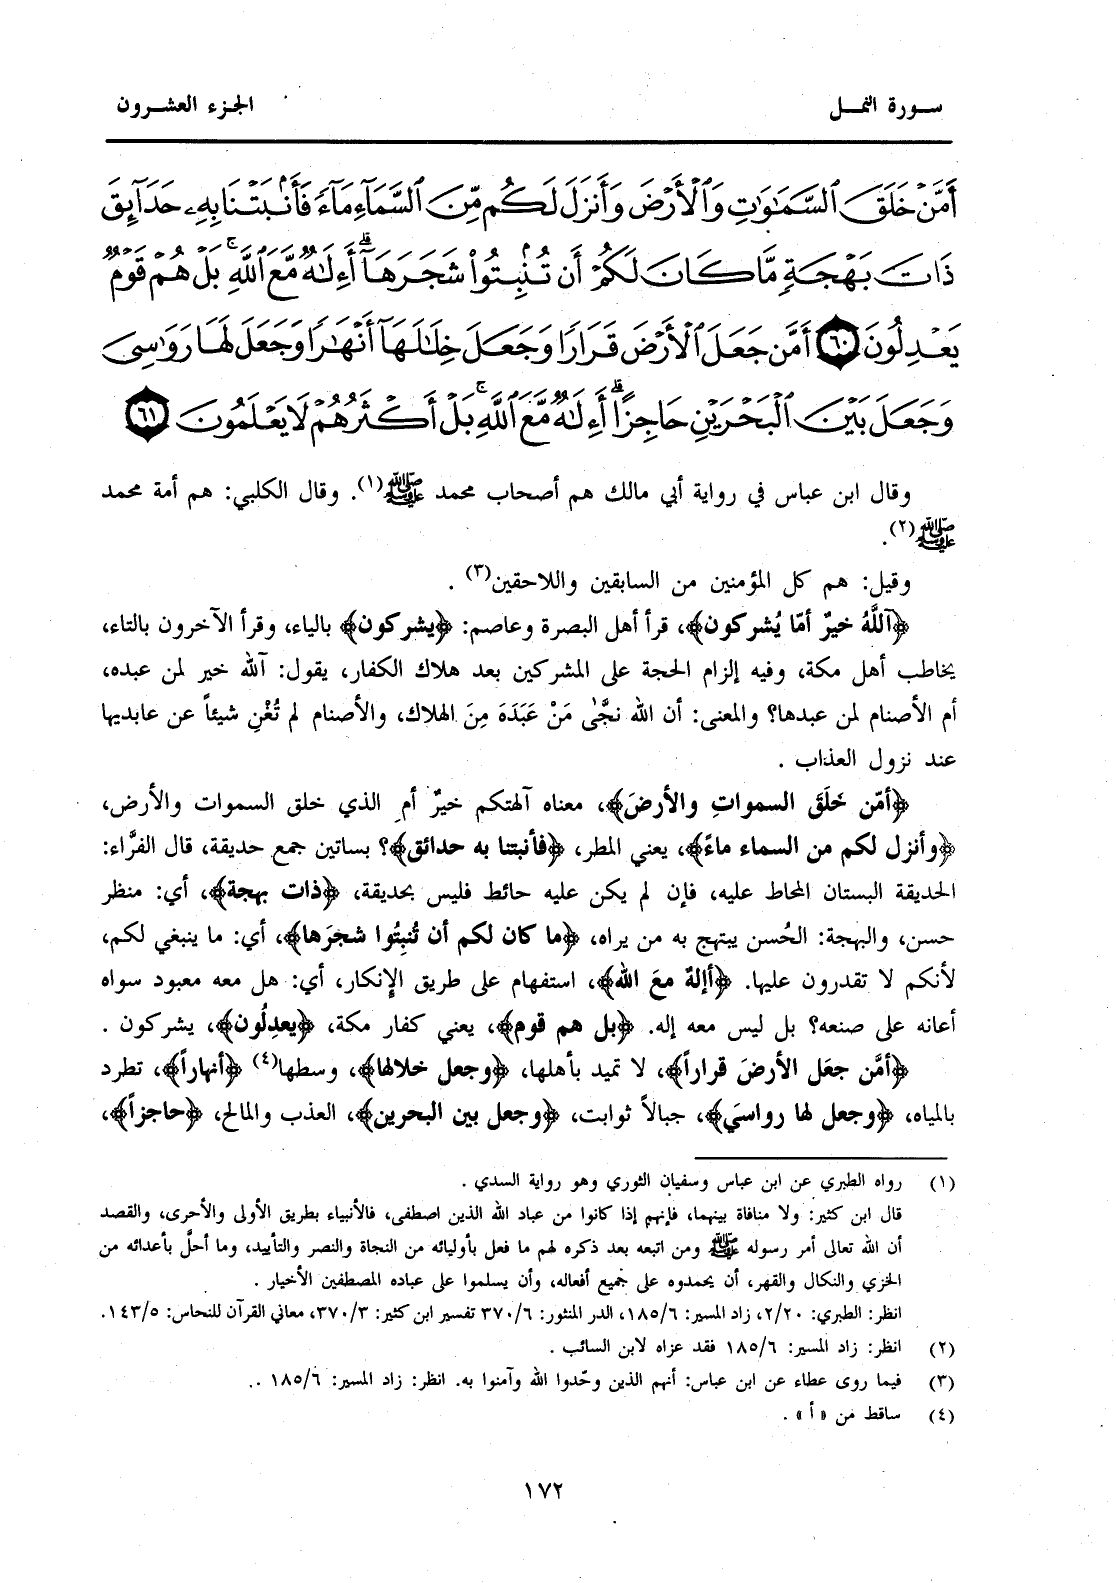 سورة النمل
الجزء العشرون
أَمَّنْ خَلَقَ ٱلسَّمَٰوَٰتِ وَٱلْأَرْضَ وَأَنزَلَ لَكُم مِّنَ ٱلسَّمَآءِ مَآءً فَأَنۢبَتْنَا بِهِۦ حَدَآئِقَ
ذَاتَ بَهْجَةٍ مَّا كَانَ لَكُمْ أَن تُنۢبِتُوا۟ شَجَرَهَآ ۗ أَءِلَٰهٌ مَّعَ ٱللَّهِ ۚ بَلْ هُمْ قَوْمٌ
يَعْدِلُونَ ٦٠ أَمَّن جَعَلَ ٱلْأَرْضَ قَرَارًا وَجَعَلَ خِلَٰلَهَآ أَنْهَٰرًا وَجَعَلَ لَهَا رَوَٰسِىَ
وَجَعَلَ بَيْنَ ٱلْبَحْرَيْنِ حَاجِزًا ۗ أَءِلَٰهٌ مَّعَ ٱللَّهِ ۚ بَلْ أَكْثَرُهُمْ لَا يَعْلَمُونَ ٦١
وقال ابن عباس في رواية أبي مالك هم أصحاب محمد ﷺ(١). وقال الكلبي: هم أمة محمد
ﷺ(٢).
وقيل: هم كل المؤمنين من السابقين واللاحقين(٣) .
﴿آللَّهُ خيرٌ أمّا يُشركون﴾، قرأ أهل البصرة وعاصم: ﴿يشركون﴾ بالياء، وقرأ الآخرون بالتاء،
يخاطب أهل مكة، وفيه إلزام الحجة على المشركين بعد هلاك الكفار، يقول: آلله خير لمن عبده،
أم الأصنام لمن عبدها؟ والمعنى: أن الله نجَّى مَنْ عَبَدَهَ مِنَ الهلاك، والأصنام لم تُغْنِ شيئاً عن عابديها
عند نزول العذاب .
﴿أمّن خَلَقَ السمواتِ والأرضَ﴾، معناه آلهتكم خيرٌ أم الذي خلق السموات والأرض،
﴿وأنزل لكم من السماء ماءً﴾، يعني المطر، ﴿فأنبتنا به حدائق﴾؟ بساتين جمع حديقة، قال الفرَّاء:
الحديقة البستان المحاط عليه، فإن لم يكن عليه حائط فليس بحديقة، ﴿ذات بهجة﴾، أي: منظر
حسن، والبهجة: الحُسن يبتهج به من يراه، ﴿ما كان لكم أن تُنبِتُوا شجرَها﴾، أي: ما ينبغي لكم،
لأنكم لا تقدرون عليها. ﴿أإلهٌ معَ الله﴾، استفهام على طريق الإنكار، أي: هل معه معبود سواه
أعانه على صنعه؟ بل ليس معه إله. ﴿بل هم قوم﴾، يعني كفار مكة، ﴿يعدِلُون﴾، يشركون .
﴿أمَّن جعَل الأرضَ قراراً﴾، لا تميد بأهلها، ﴿وجعل خلالها﴾، وسطها(٤) ﴿أنهاراً﴾، تطرد
بالمياه، ﴿وجعل لها رواسيَ﴾، جبالاً ثوابت، ﴿وجعل بين البحرين﴾، العذب والمالح، ﴿حاجزاً﴾،
(١) رواه الطبري عن ابن عباس وسفيان الثوري وهو رواية السدي .
قال ابن كثير: ولا منافاة بينهما، فإنهم إذا كانوا من عباد الله الذين اصطفى، فالأنبياء بطريق الأولى والأحرى، والقصد
أن الله تعالى أمر رسوله ﷺ ومن اتبعه بعد ذكره لهم ما فعل بأوليائه من النجاة والنصر والتأييد، وما أحلَّ بأعدائه من
الخزي والنكال والقهر، أن يحمدوه على جميع أفعاله، وأن يسلموا على عباده المصطفين الأخيار .
انظر: الطبري: ٢/٢٠، زاد المسير: ١٨٥/٦، الدر المنثور: ٣٧٠/٦ تفسير ابن كثير: ٣٧٠/٣، معاني القرآن للنحاس: ١٤٣/٥.
(٢) انظر: زاد المسير: ١٨٥/٦ فقد عزاه لابن السائب .
(٣) فيما روى عطاء عن ابن عباس: أنهم الذين وحّدوا الله وآمنوا به. انظر: زاد المسير: ١٨٥/٦ ..
(٤) ساقط من «أ» .
١٧٢